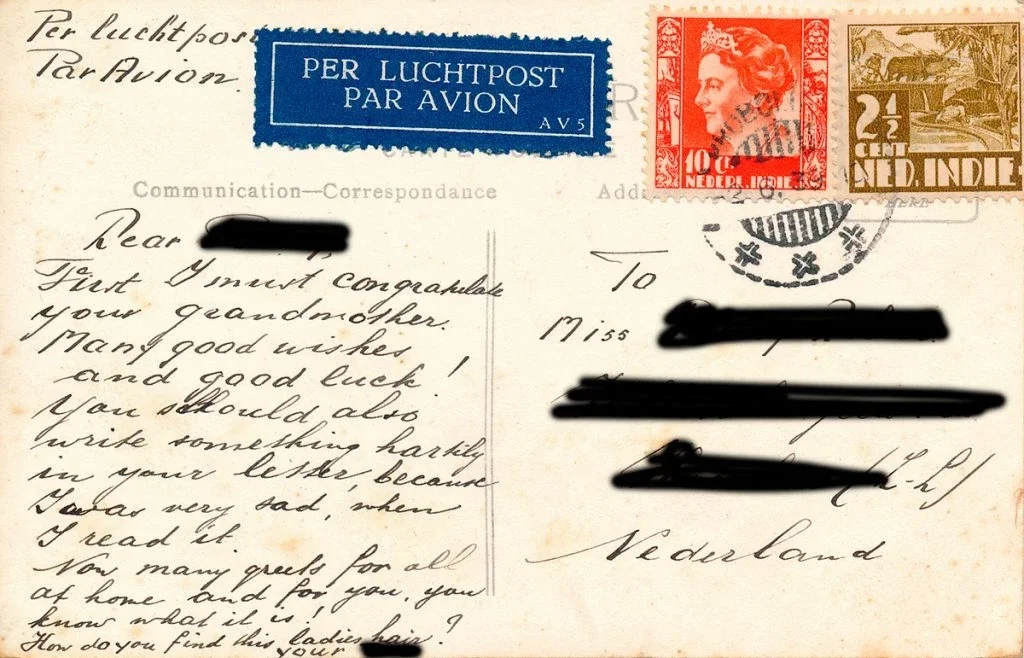 Per luchtpost
Par Avion.
PER LUCHTPOST
PAR AVION
AV5
10 CT
NEDERL. INDIE
2½
CENT
NED. INDIE
Communication—Correspondance
Dear
First I must congratulate
your grandmother.
Many good wishes
and good luck!
You should also
write something hartily
in your letter, because
I was very sad, when
I read it.
Now many greets for all
at home and for you, you
know what it is!
How do you find this ladies hair?
your
To
Miss
(Z-L)
Nederland